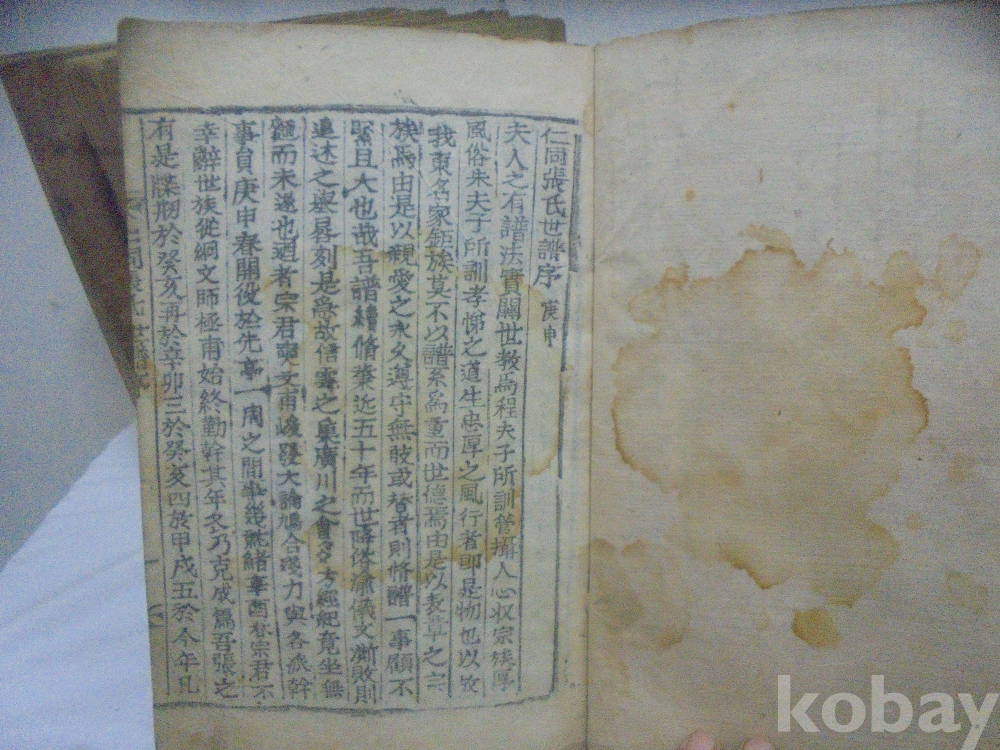 仁同張氏世譜序 庚申
夫人之有譜法實關世教焉程夫子所訓管攝人心收宗族厚
風俗朱夫子所訓孝悌之道生忠厚之風行者即是物也以故
我東名家鉅族莫不以譜系為重而世德焉由是以表章之宗
族焉由是以親愛之永久遵守無敢或替者則脩譜一事顧不
緊且大也哉吾譜續脩葉近五十年而世降俗渝儀文漸敗則
追述之擧晷刻是急故信靈之奧廣川之會多方經紀竟坐無
麵而未遂也迺者宗君 文甫峻發大論鳩合衆力與各派幹
事自庚申春開役於先亭一周之間事幾就緒辛酉春宗君不
幸辭世族從綱文師極甫始終勤幹其年冬乃克成篇吾張之
有是牒刱於癸亥再於辛卯三於癸亥四於甲戌五於今年凡
仁同張氏世譜序
kobay